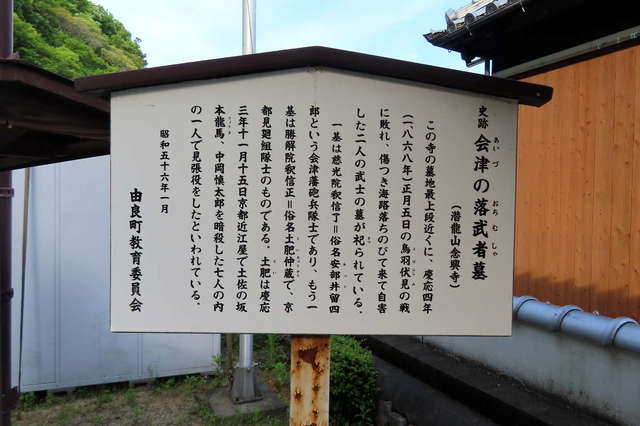 史跡 会津の落武者墓
あいづ おちむしゃ
(潜龍山念興寺)
この寺の墓地最上段近くに、慶応四年
(一八六八年)正月五日の鳥羽伏見の戦
に敗れ、傷つき海路落ちのびて来て自害
した二人の武士の墓が祀られている。
一基は慈光院釈信了=俗名安部井留四
郎という会津藩砲兵隊士であり、もう一
基は勝解院釈信正=俗名土肥仲蔵で、京
都見廻組隊士のものである。土肥は慶応
三年十一月十五日京都近江屋で土佐の坂
本龍馬、中岡慎太郎を暗殺した七人の内
の一人で見張役をしたといわれている。
昭和五十六年一月
由良町教育委員会